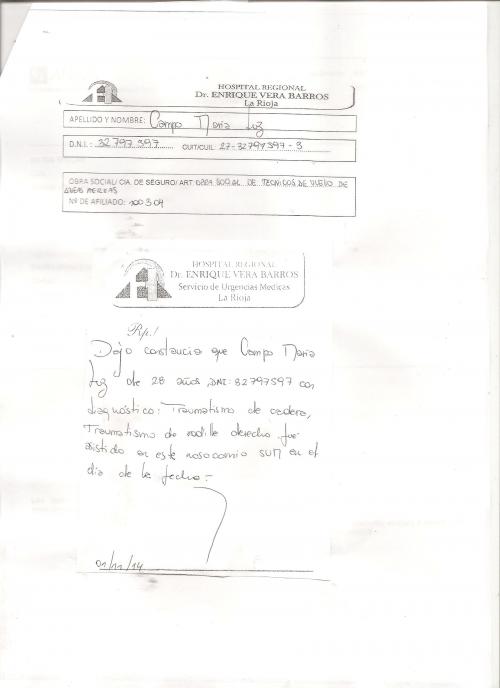 HOSPITAL REGIONAL
Dr. ENRIQUE VERA BARROS
La Rioja
APELLIDO Y NOMBRE: Campo Maria Luz
D.N.I.: 32 797 597 CUIT/CUIL: 27-32797597-3
OBRA SOCIAL/ CIA. DE SEGURO/ ART: OBRA SOCIAL DE TECNICOS DE VUELO DE
LINEAS AEREAS
Nº DE AFILIADO: 100309
HOSPITAL REGIONAL
Dr. ENRIQUE VERA BARROS
Servicio de Urgencias Medicas
La Rioja
Rp.!
Dejo constancia que Campo Maria
Luz de 28 años, DNI: 32797597 con
diagnóstico: Traumatismo de cadera,
Traumatismo de rodilla derecha fue
asistido en este nosocomio SUM en el
dia de la fecha.-
01/11/14